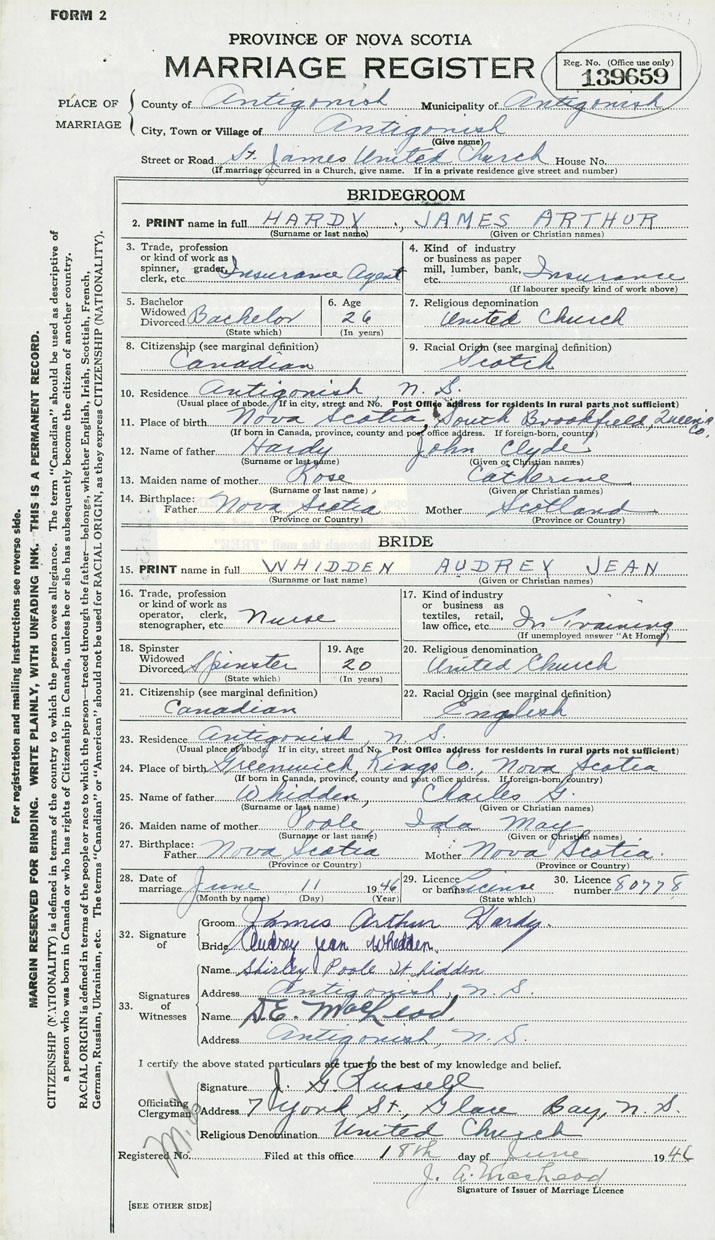 FORM 2
PROVINCE OF NOVA SCOTIA
MARRIAGE REGISTER
Reg. No. (Office use only)
139659
PLACE OF MARRIAGE
County of Antigonish Municipality of Antigonish
City, Town or Village of Antigonish
(Give name)
Street or Road St. James United Church House No.
(If marriage occurred in a Church, give name. If in a private residence give street and number)
BRIDEGROOM
2. PRINT name in full HARDY, JAMES ARTHUR
(Surname or last name) (Given or Christian names)
3. Trade, profession or kind of work as spinner, grader, clerk, etc. Insurance Agent
4. Kind of industry or business as paper mill, lumber, bank, etc. Insurance
(If labourer specify kind of work above)
5. Bachelor Widowed Divorced Bachelor
(State which)
6. Age 26
(In years)
7. Religious denomination
United Church
8. Citizenship (see marginal definition)
Canadian
9. Racial Origin (see marginal definition)
Scotch
10. Residence Antigonish, N. S.
(Usual place of abode. If in city, street and No. Post Office address for residents in rural parts not sufficient)
11. Place of birth Nova Scotia, South Brookfield, Queen's Co.
(If born in Canada, province, county and post office address. If foreign-born, country)
12. Name of father Hardy John Clyde
(Surname or last name) (Given or Christian names)
13. Maiden name of mother Rose Catherine
(Surname or last name) (Given or Christian names)
14. Birthplace: Father Nova Scotia Mother Scotland
(Province or Country) (Province or Country)
BRIDE
15. PRINT name in full WHIDDEN AUDREY JEAN
(Surname or last name) (Given or Christian names)
16. Trade, profession or kind of work as operator, clerk, stenographer, etc. Nurse
17. Kind of industry or business as textiles, retail, law office, etc. In Training
(If unemployed answer "At Home")
18. Spinster Widowed Divorced Spinster
(State which)
19. Age 20
(In years)
20. Religious denomination
United Church
21. Citizenship (see marginal definition)
Canadian
22. Racial Origin (see marginal definition)
English
23. Residence Antigonish, N. S.
(Usual place of abode. If in city, street and No. Post Office address for residents in rural parts not sufficient)
24. Place of birth Greenwich, Kings Co., Nova Scotia
(If born in Canada, province, county and post office address. If foreign-born, country)
25. Name of father Whidden, Charles G.
(Surname or last name) (Given or Christian names)
26. Maiden name of mother Poole Ida May
(Surname or last name) (Given or Christian names)
27. Birthplace: Father Nova Scotia Mother Nova Scotia.
(Province or Country) (Province or Country)
28. Date of marriage June 11 1946
(Month by name) (Day) (Year)
29. Licence or banns License
(State which)
30. Licence number 80778
32. Signature of
Groom James Arthur Hardy.
Bride Audrey Jean Whidden.
33. Signatures of Witnesses
Name Shirley Poole Whidden
Address Antigonish, N. S.
Name D.E. MacLeod
Address Antigonish, N. S.
I certify the above stated particulars are true to the best of my knowledge and belief.
Officiating Clergyman
Signature J. G. Russell
Address 7 York St., Glace Bay, N. S.
Religious Denomination United Church
Registered No. Filed at this office 18th day of June 1946
J. A. MacLeod
Signature of Issuer of Marriage Licence
[SEE OTHER SIDE]
For registration and mailing instructions see reverse side.
MARGIN RESERVED FOR BINDING. WRITE PLAINLY, WITH UNFADING INK. THIS IS A PERMANENT RECORD.
CITIZENSHIP (NATIONALITY) is defined in terms of the country to which the person owes allegiance. The term "Canadian" should be used as descriptive of
a person who was born in Canada or who has rights of Citizenship in Canada, unless he or she has subsequently become the citizen of another country.
RACIAL ORIGIN is defined in terms of the people or race to which the person—traced through the father—belongs, whether English, Irish, Scottish, French,
German, Russian, Ukrainian, etc. The terms "Canadian" or "American" should not be used for RACIAL ORIGIN, as they express CITIZENSHIP (NATIONALITY).